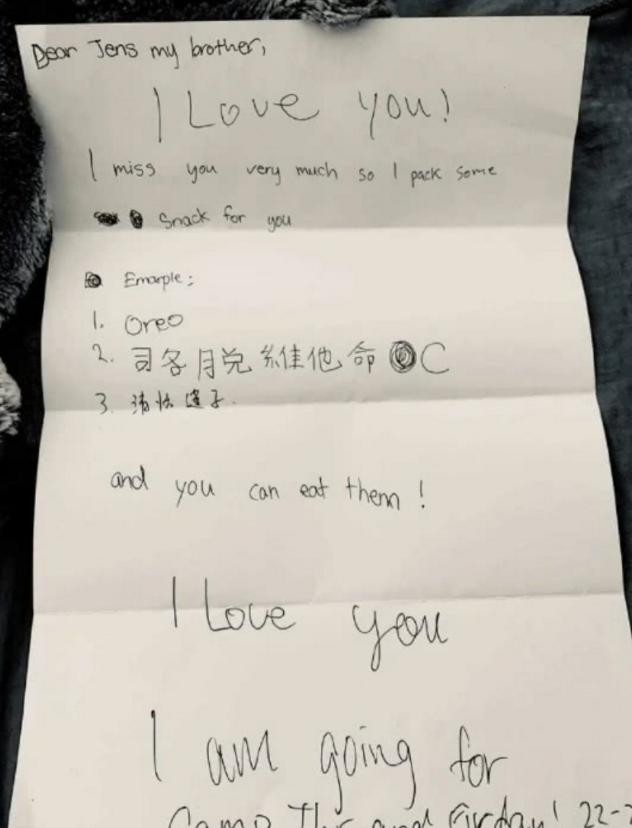 Dear Jens my brother,
I Love you!
I miss you very much so I pack some
Snack for you
Emarple:
1. Oreo
2. 司各脫維他命 C
3.
and you can eat them!
I Love you
I am going for
Camp and Firday! 22-